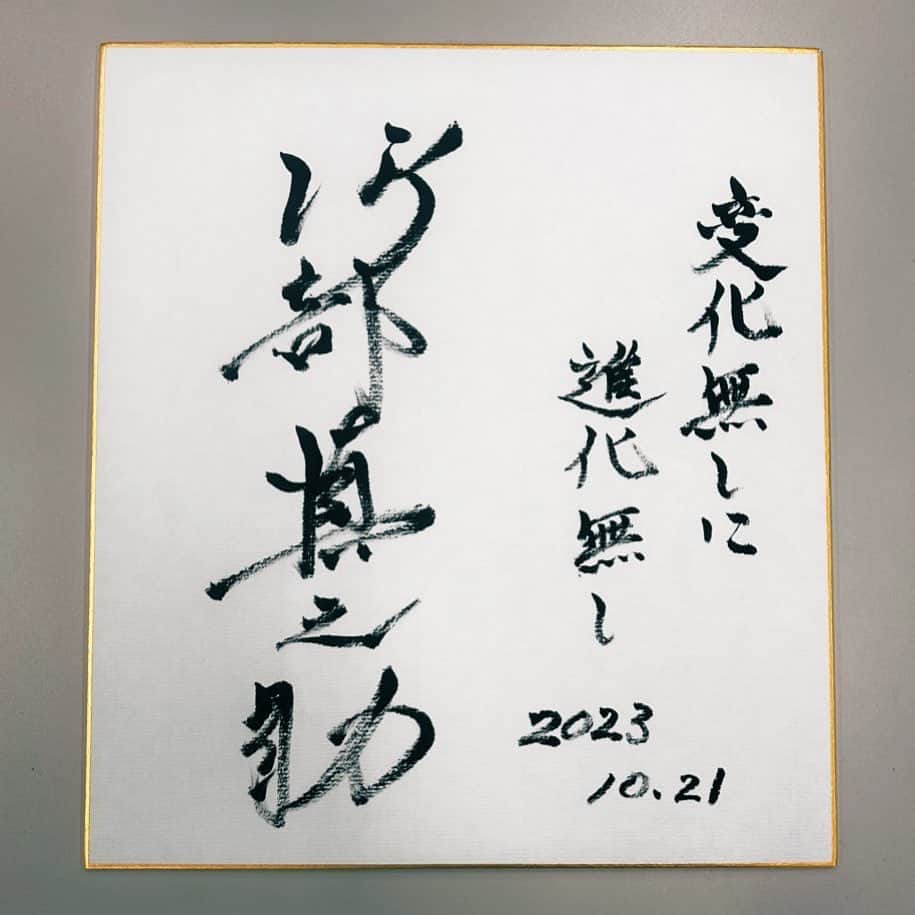 変化無しに
進化無し
2023
10.21
阿部慎之助